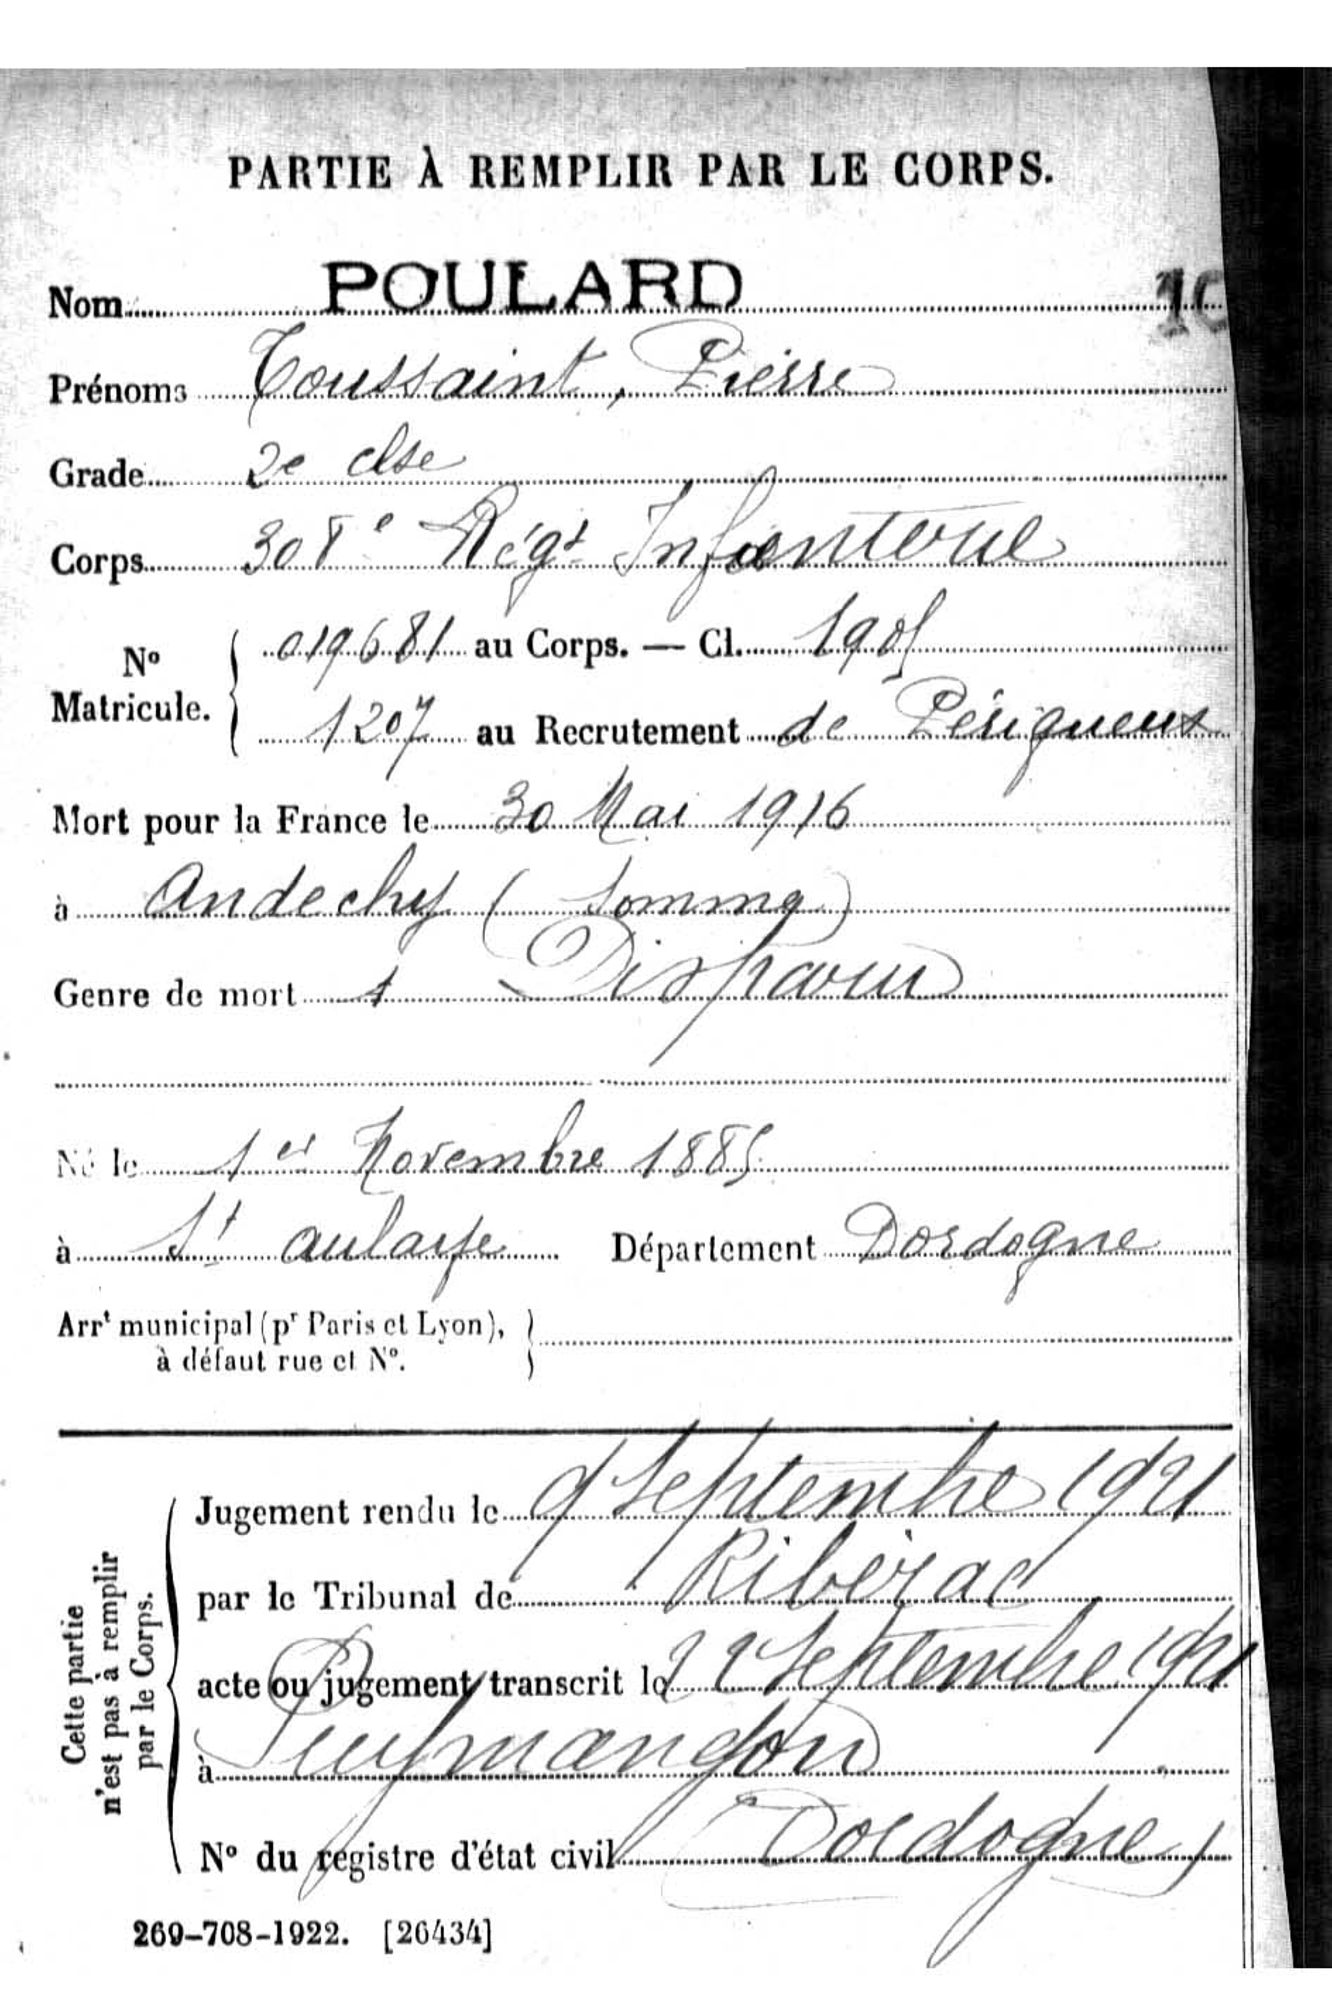 PARTIE À REMPLIR PAR LE CORPS.
Nom POULARD
Prénoms Toussaint, Pierre
Grade 2e clse
Corps 308e Régt Infanterie
No Matricule. 019681 au Corps. — Cl. 1905
1207 au Recrutement de Périgueux
Mort pour la France le 30 Mai 1916
à Andechy (Somme)
Genre de mort Disparu
Né le 1er Novembre 1885
à St Aulaye Département Dordogne
Arrt municipal (pr Paris et Lyon),
à défaut rue et No.
Cette partie
n'est pas à remplir
par le Corps.
Jugement rendu le 9 Septembre 1921
par le Tribunal de Ribérac
acte ou jugement transcrit le 22 Septembre 1921
à Puymangou
No du registre d'état civil (Dordogne)
269-708-1922. [26434]